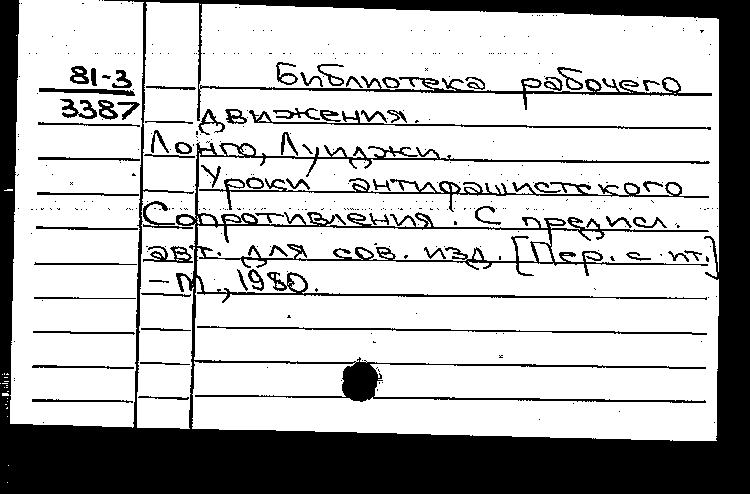 81-3 Библиотека рабочего
3387 движения.
Лонго, Луиджи.
Уроки антифашистского
Сопротивления. С предисл.
авт. для сов. изд. [Пер. с ит.]
- М., 1980.